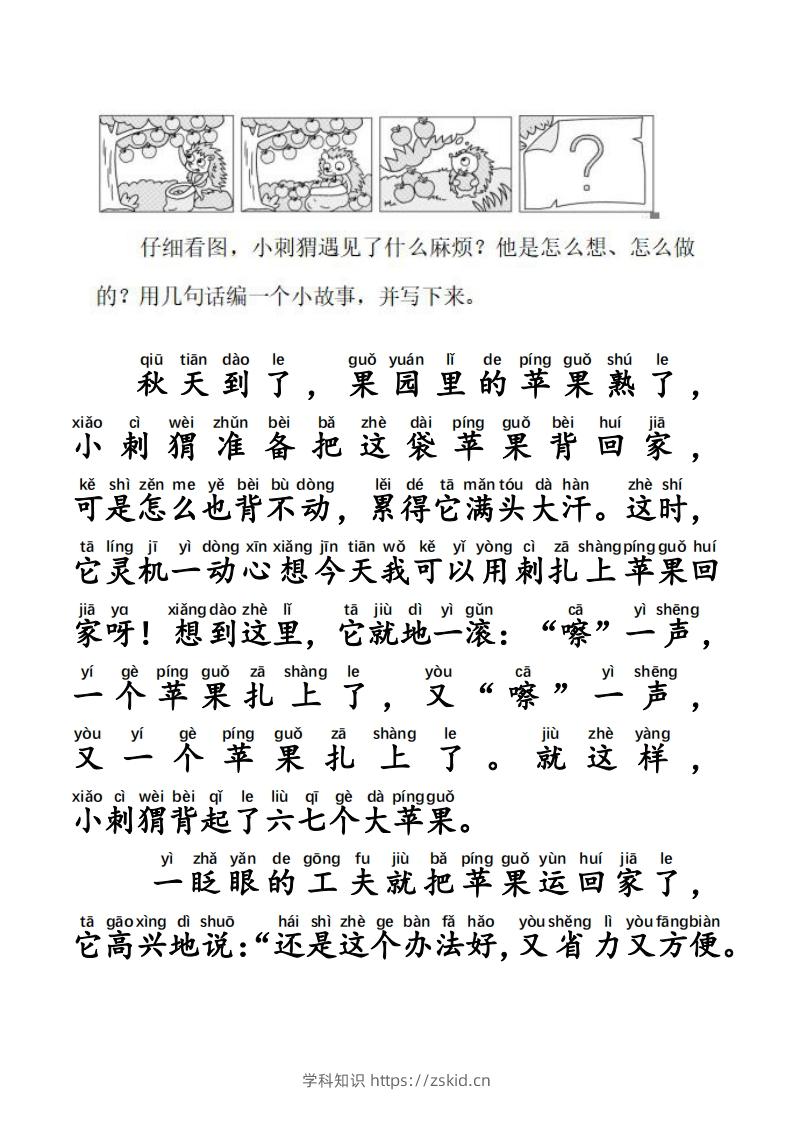 ?
仔细看图，小刺猬遇见了什么麻烦？他是怎么想、怎么做
的？用几句话编一个小故事，并写下来。
qiū tiān dào le guǒ yuán lǐ de píng guǒ shú le
秋天到了，果园里的苹果熟了，
xiǎo cì wèi zhǔn bèi bǎ zhè dài píng guǒ bèi huí jiā
小刺猬准备把这袋苹果背回家，
kě shì zěn me yě bèi bù dòng lěi dé tā mǎn tóu dà hàn zhè shí
可是怎么也背不动，累得它满头大汗。这时，
tā líng jī yì dòng xīn xiǎng jīn tiān wǒ kě yǐ yòng cì zā shàng píng guǒ huí
它灵机一动心想今天我可以用刺扎上苹果回
jiā ya xiǎng dào zhè lǐ tā jiù dì yì gǔn cā yì shēng
家呀！想到这里，它就地一滚：“嚓”一声，
yí gè píng guǒ zā shàng le yòu cā yì shēng
一个苹果扎上了，又“嚓”一声，
yòu yí gè píng guǒ zā shàng le jiù zhè yàng
又一个苹果扎上了。就这样，
xiǎo cì wèi bèi qǐ le liù qī gè dà píng guǒ
小刺猬背起了六七个大苹果。
yì zhǎ yǎn de gōng fu jiù bǎ píng guǒ yùn huí jiā le
一眨眼的工夫就把苹果运回家了，
tā gāo xìng dì shuō hái shì zhè ge bàn fǎ hǎo yòu shěng lì yòu fāng biàn
它高兴地说：“还是这个办法好，又省力又方便。
学科知识 https://zskid.cn